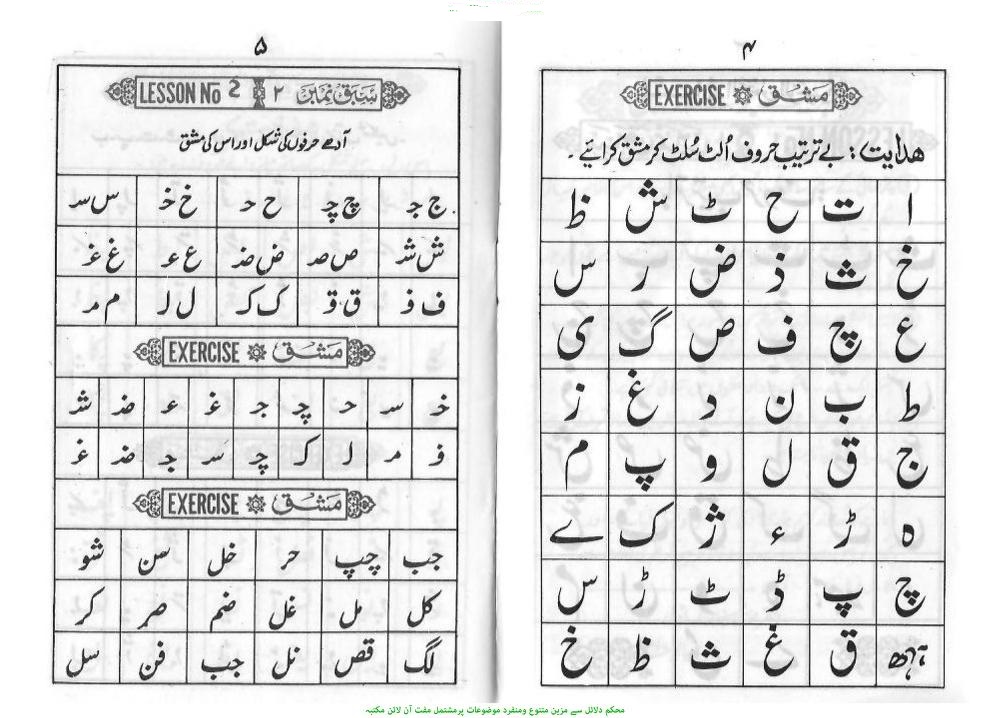 ۴
EXERCISE مشق
ھدایت : بے ترتیب حروف اُلٹ سُلٹ کر مشق کرائیے ۔
ا ت ح ٹ ش ظ
خ ث ذ ض ر س
ع چ ف ص گ ی
ط ب ن د غ ز
ج ق ل و پ م
ہ ڑ ء ژ ک ے
چ پ ڈ ٹ ڑ س
ق غ ث ظ خ
۵
LESSON No 2 ۲ سبق نمبر
آدھے حرفوں کی شکل اور اس کی مشق
ج جـ چ چـ ح حـ خ خـ س سـ
ش شـ ص صـ ض ضـ ع عـ غ غـ
ف فـ ق قـ ک کـ ل لـ م مـ
EXERCISE مشق
خـ سـ حـ چـ جـ غـ عـ ضـ شـ
فـ مـ لـ کـ چـ سـ جـ ضـ غـ
EXERCISE مشق
جب چپ حر خل سن شو
کل مل غل ضم صر کر
لگ قص نل جب فن سل
محکم دلائل سے مزین متنوع ومنفرد موضوعات پرمشتمل مفت آن لائن مکتبہ